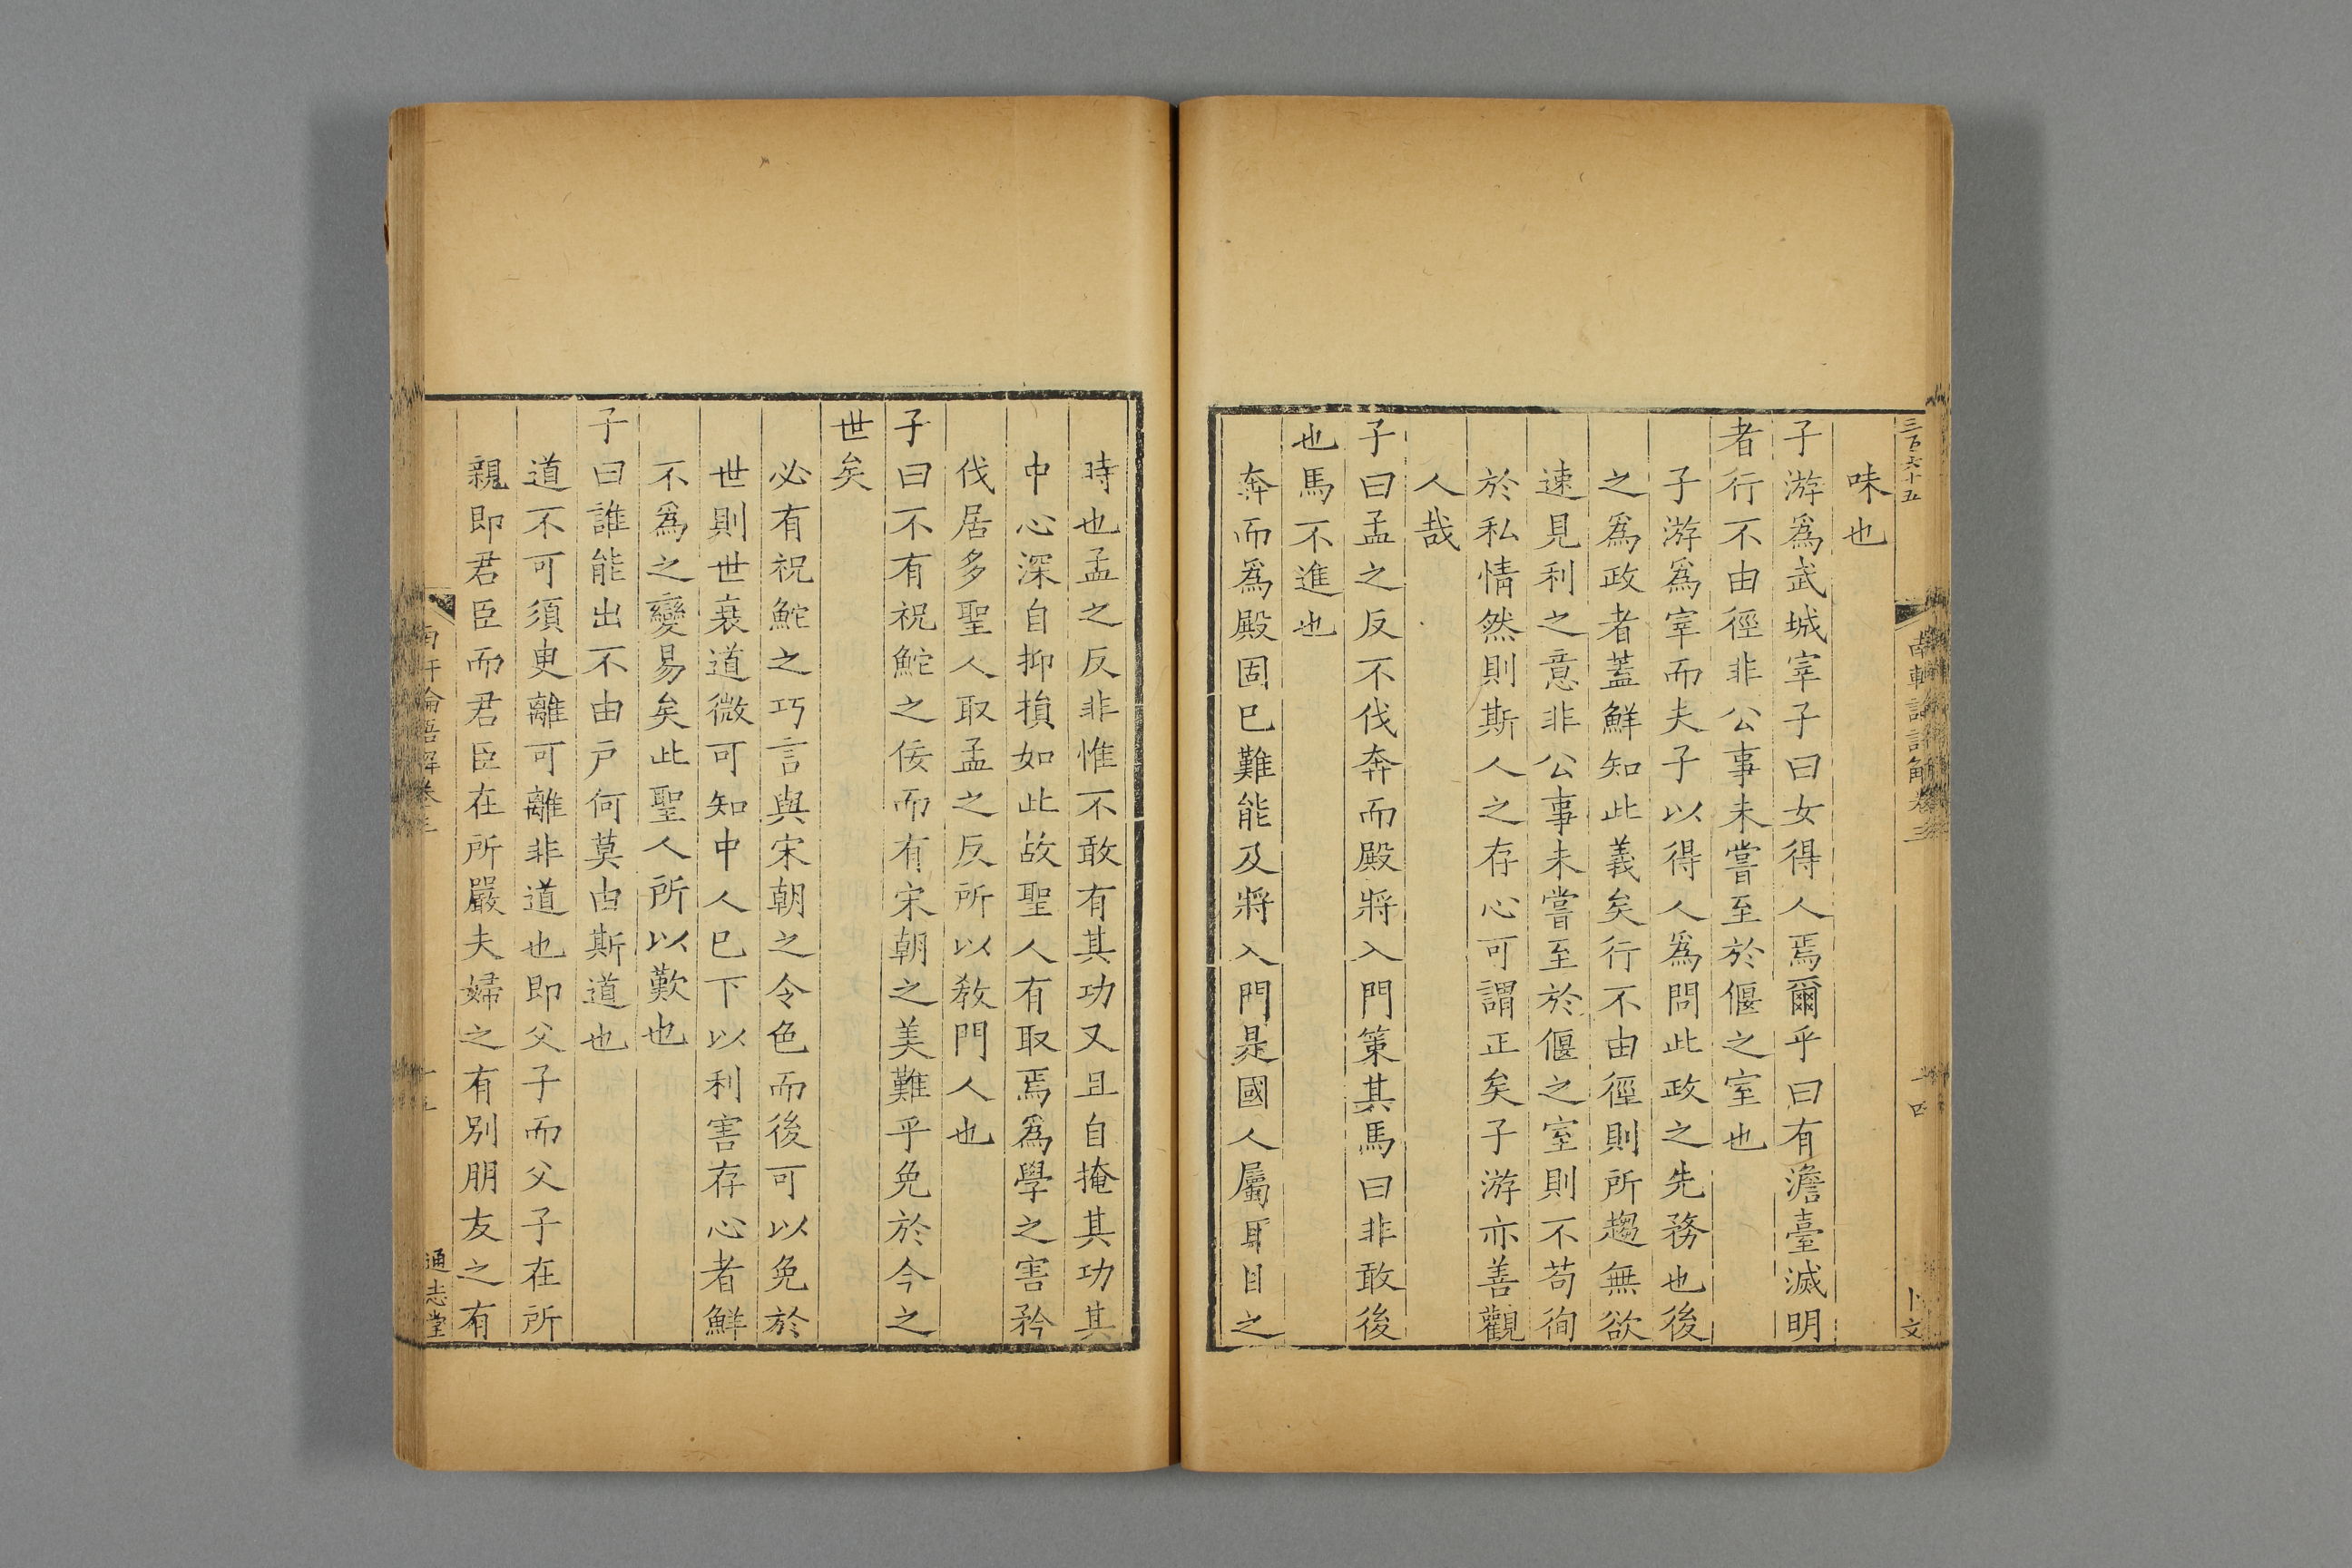 三百六十五
味也
子游爲武城宰子曰女得人焉爾乎曰有澹臺滅明
者行不由徑非公事未嘗至於偃之室也
子游爲宰而夫子以得人爲問此政之先務也後
之爲政者蓋鮮知此義矣行不由徑則所趨無欲
速見利之意非公事未嘗至於偃之室則不苟徇
於私情然則斯人之存心可謂正矣子游亦善觀
人哉
子曰孟之反不伐奔而殿將入門策其馬曰非敢後
也馬不進也
奔而爲殿固已難能及將入門是國人屬耳目之
時也孟之反非惟不敢有其功又且自掩其功其
中心深自抑損如此故聖人有取焉爲學之害矜
伐居多聖人取孟之反所以敎門人也
子曰不有祝鮀之佞而有宋朝之美難乎免於今之
世矣
必有祝鮀之巧言與宋朝之令色而後可以免於
世則世衰道微可知中人已下以利害存心者鮮
不爲之變易矣此聖人所以歎也
子曰誰能出不由戸何莫由斯道也
道不可須臾離可離非道也即父子而父子在所
親即君臣而君臣在所嚴夫婦之有別朋友之有
南軒論語解卷三
通志堂